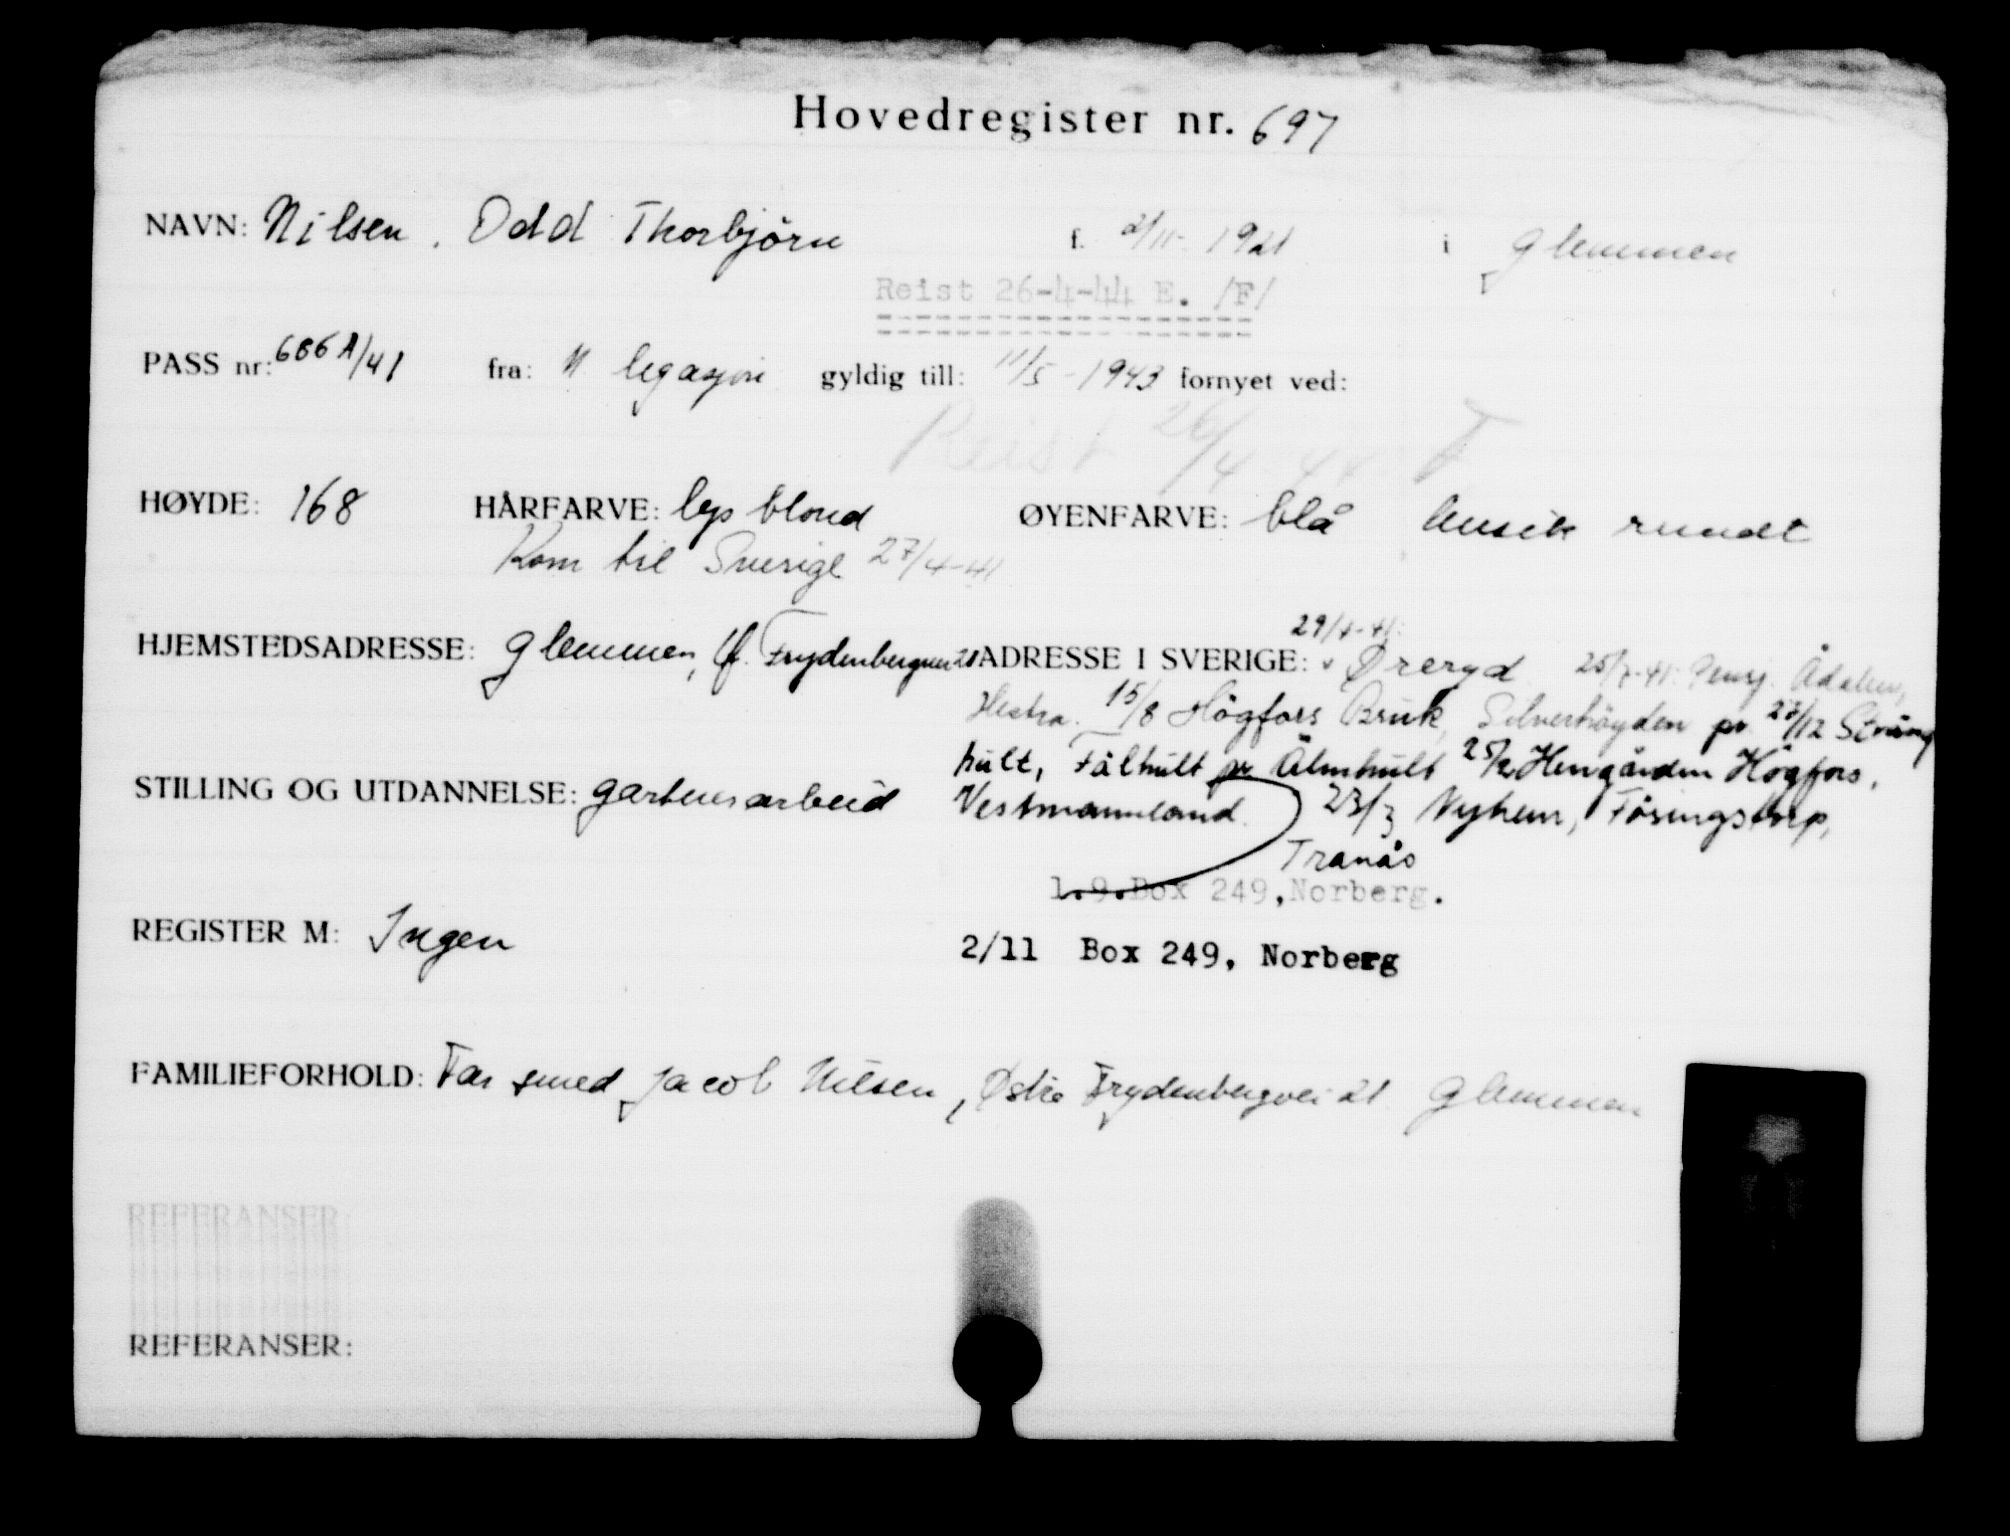 Hovedregister nr. 697
NAVN: Nilsen, Odd Thorbjörn f. 2/11- 1921 i Glemmen
Reist 26-4-44 E. /F/
PASS nr: 686 A/41 fra: N legasjon gyldig till: 11/5 - 1943 fornyet ved:
Reist 26/4-44 F
HØYDE: 168 HÅRFARVE: lys blond ØYENFARVE: blå Ansikt rundt
Kom til Sverige 27/4-41
HJEMSTEDSADRESSE: Glemmen, Ø. Frydenbergvei 21 ADRESSE I SVERIGE: 29/4-41: Øreryd 25/7-41: Pensj. Ådalen,
Hestra. 15/8 Högfors Bruk, Silverhöyden pr 27/12 Sträng
hult, Fälhult pr Älmhult 25/2 Herrgården Högfors,
STILLING OG UTDANNELSE: gartnerarbeid Vestmannland. 23/3 Nyhem, Föringstorp,
Tranås
1.9. Box 249, Norberg.
REGISTER M: Ingen 2/11 Box 249, Norberg
FAMILIEFORHOLD: Far smed Jacob Nilsen, Østre Frydenbergvei 21 Glemmen
REFERANSER:
REFERANSER: